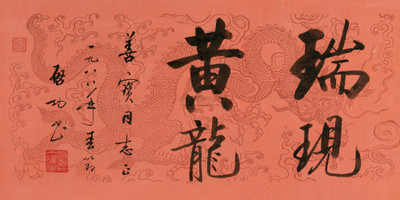 瑞現
黃龍
善寶同志正
一九八八年春節
啟功